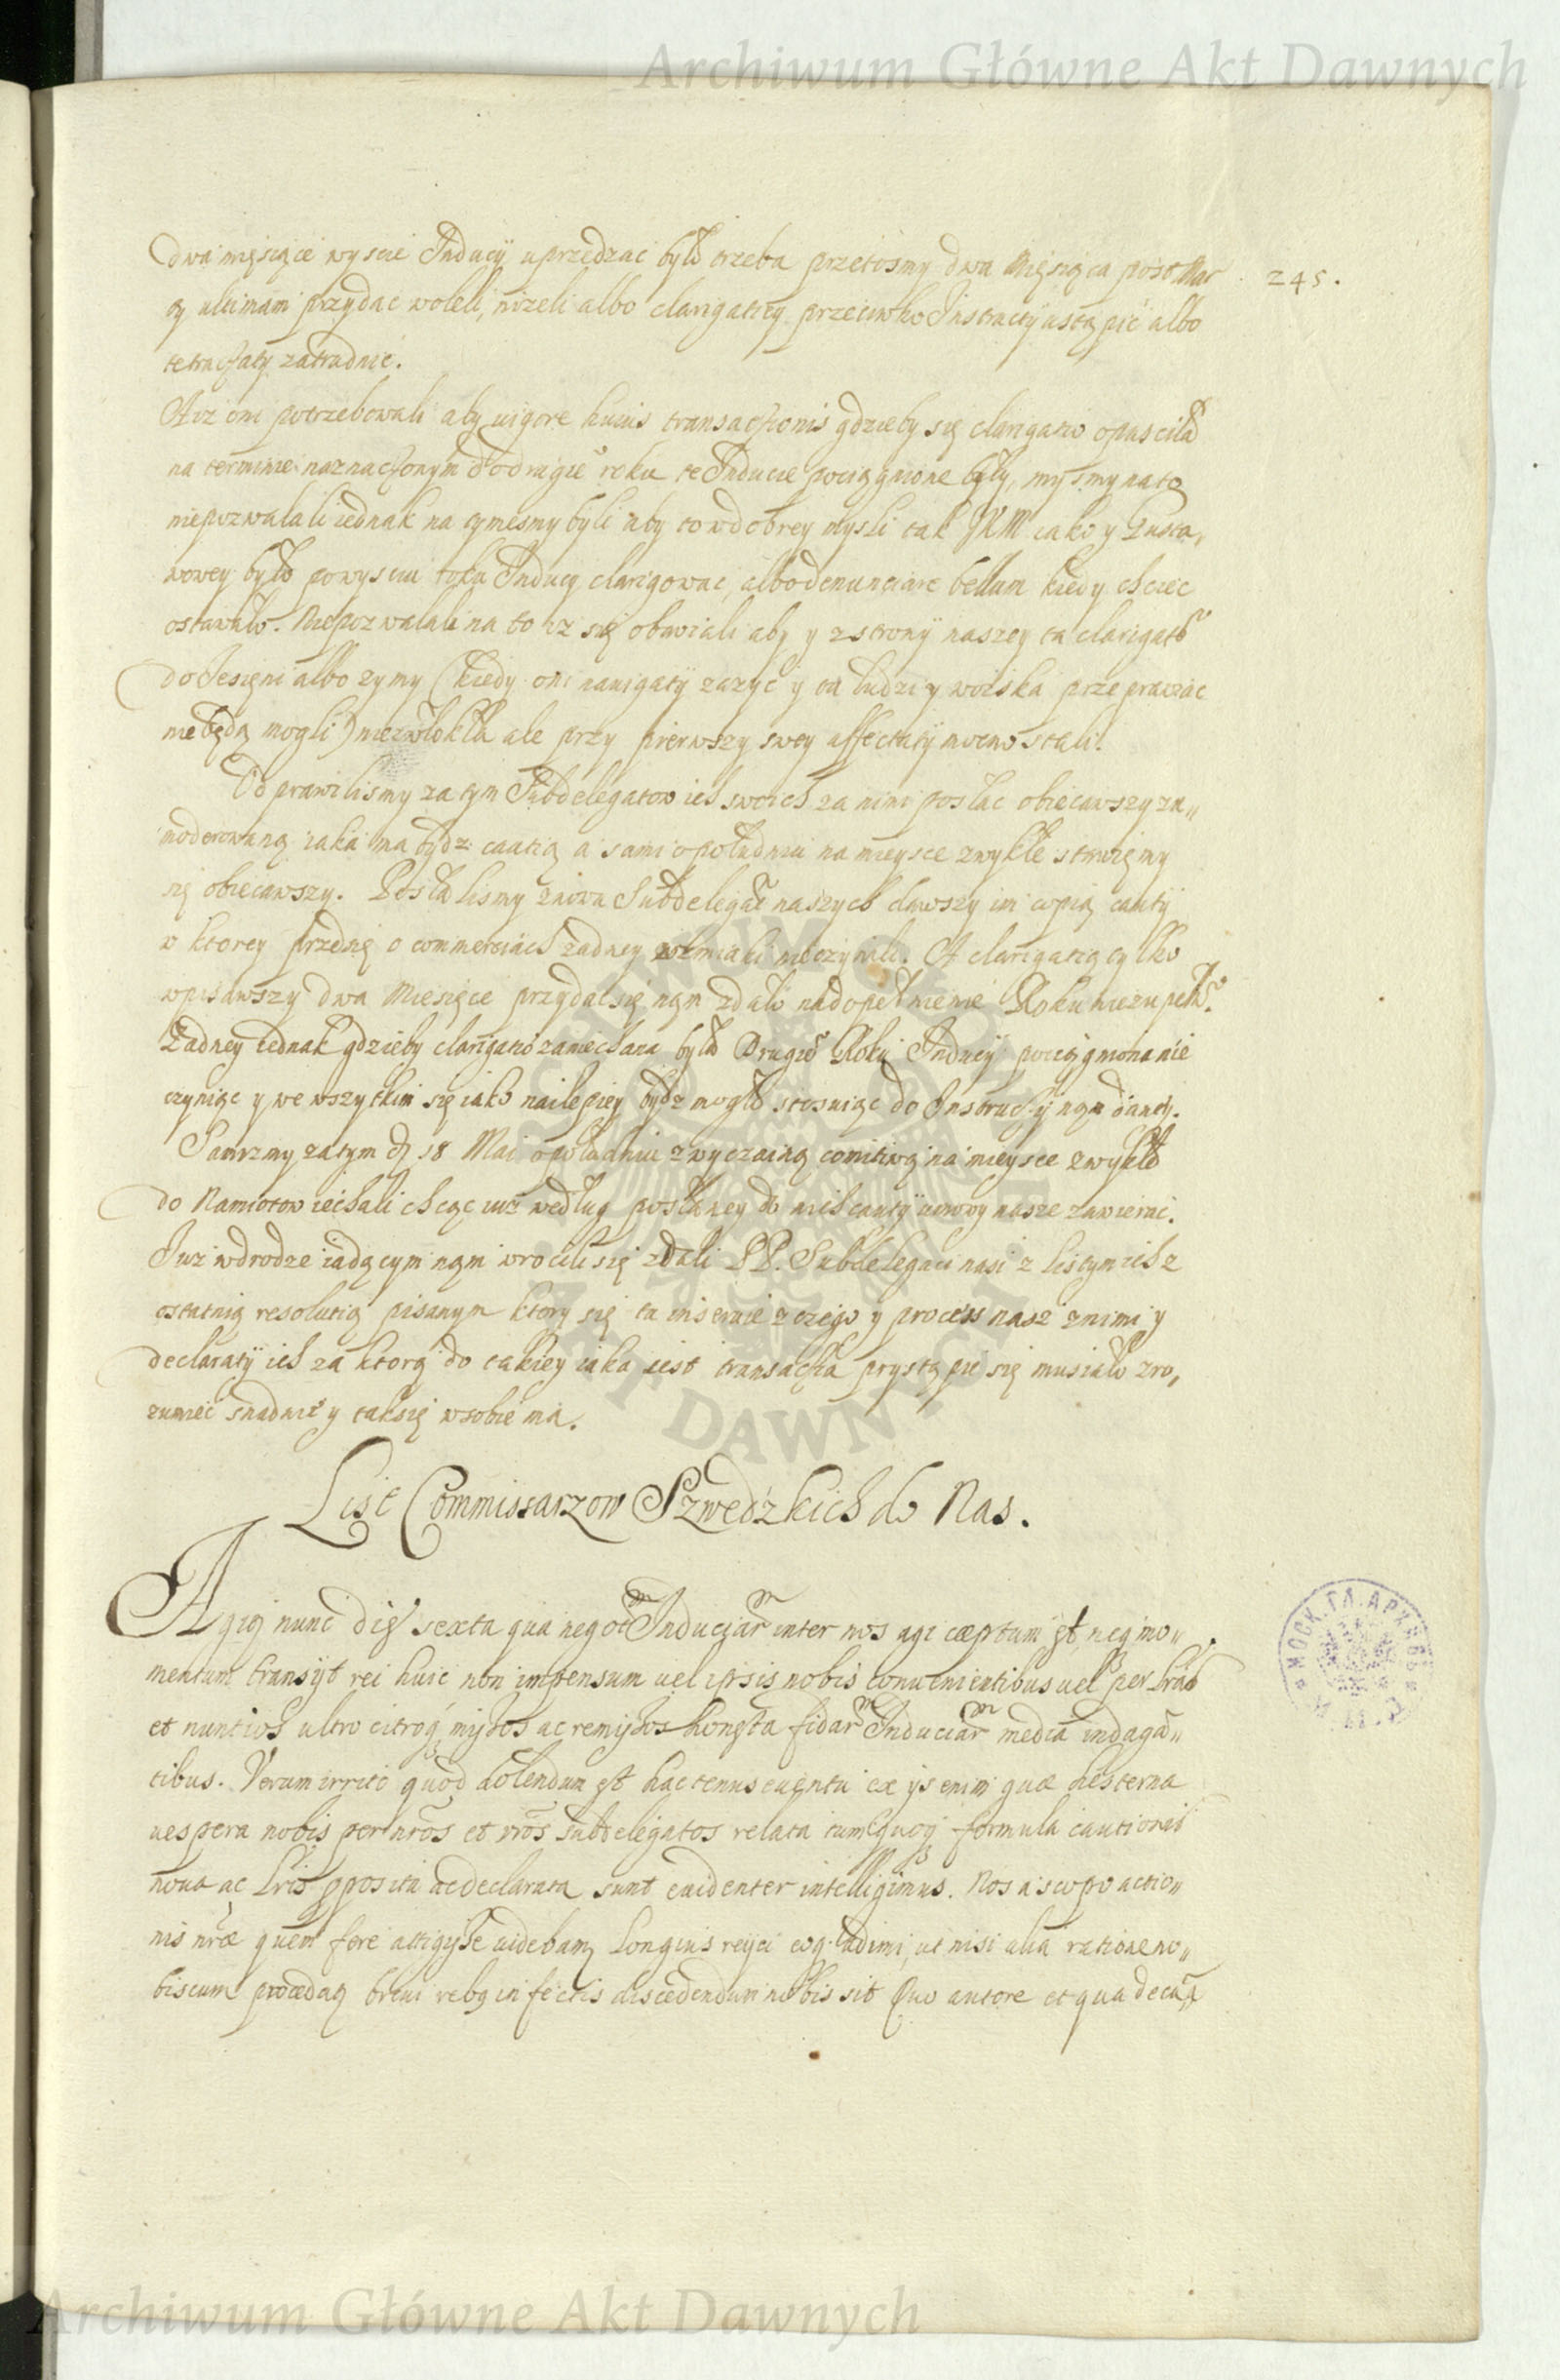 Archiwum Główne Akt Dawnych
245.
dwa mięsiące wyscie Inducij uprzedzac było trzeba przetosmy dwa Mięsiąca post
ultimam przydac woleli, nizeli albo clarigatiey przeciwko Instructij ustąpic albo
te tractaty zatrudnic.
A iz oni potrzebowali aby uigore huius transactionis gdzieby się clarigatio opuscila
na terminie naznaczonym do drugie° roku te Inducie pociągnione były, mysmy na to
niepozwalali iednak na tymesmy byli aby to w dobrey mysli tak JKM iako y Gusta,
wowey było powysciu roku Inducy clarigowac, albo denunciare bellum kiedy chciec
ostawało. Niepozwalali na to iz się obawiali aby y z strony naszey ta clarigatio
do Iesieni albo zymy (kiedy oni nauigatij zazyc y tu ludzi y woiska przeprawiac
nie będą mogli) niezwlokła ale przy pierwszy swey affectatij mocno stali.
Odprawilismy za tym Subdelegatow ich swoich za nimi posłac obiecawszy za„
moderowaną iaka ma bydz cautią a sami opołudniu na mieysce zwykłe stawięmy
się obiecawszy. Posłalismy znowu Subdelegat naszych dawszy im copią cautij
w ktorey przednię o commerciach zadney wzmianki nieczynili. A clarigatią tylko
wpisawszy dwa Miesięce przydac się nąm zdało nadopełnienie Roku niezupełn°.
Zadney iednak gdzieby clarigatio zaniechana była Drugie° Roku Inducij pociągnionanie
czyniąc y we wszytkim się iako nailepiey bydz mogło stosuiąc do Instructij nąm daney.
Samizmy zatym d 18 Maii opołudniu zwyczainą comitiwą na mieysce zwykłe
do Namiotow iechali chcąc iuz według posłaney do nich cautij umowy nasze zawierac.
Iuz wdrodze iadącym nąm wrocili się zdali PP. Subdelegaci nasi z listym ich z
ostatnią resolutią pisanym ktory się tu inseruie z czego y process nasz znimi y
declaratij ich za ktorą do takiey iaka iest transactia prystąpic się musiało zro,
zumiec snadnie y taksię wsobie ma.
List Commissarzow Szwedzkich do Nas.
nunc dies sexta qua negot Induciar inter nos agi cæptum est, neq mo„
mentum transijt rei huic non impensum uel ipsis nobis conuenientibus uel per
et nuntios ultro citroq missos ac remissos honesta fidar Induciar media indagā„
tibus. Verum irrito quod dolendum est hactenus euentu ex ijs enim quæ hesterna
uespera nobis per nros et vros subdelegatos relata tum quoq formula cautionis
noua ac Lris pposita ac declarata sunt euidenter intelligimus. Nos a scopo actio„
nis nræ quem fere attigisse uidebam longius reijci eoq adimi, ut nisi alia ratione no„
biscum procedaq breui rebq infectis discedendum nobis sit Quo autore et qua de
МОСК. ГЛ. АРХИВЪ
Archiwum Główne Akt Dawnych